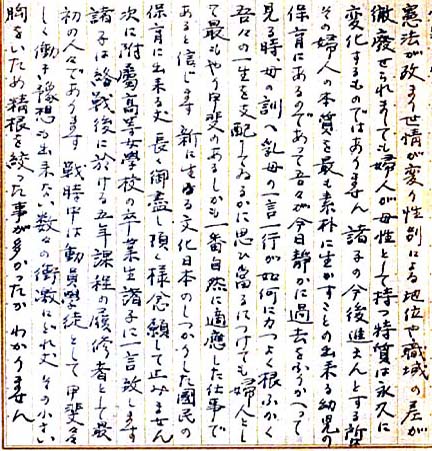 憲法が改まり世情が変り性別による地位や職域の差が
徹廃せられましても婦人が母性として持つ特質は永久に
変化するものではありません 諸子の今後進まんとする所は
その婦人の本質を最も素朴に生かすことの出来る幼児の
保育にあるのであって吾々が今日静かに過去をふりかへって
見る時、母の訓へ乳母の一言一行が如何に力つよく根ぶかく
吾々の一生を支配してゐるかに思ひ當るにつけても婦人とし
て最もやり甲斐のあるしかも一番自然に適應した仕事で
あると信じます 新に生まる文化日本のしっかりした國民の
保育に出来る丈長く御盡し頂く様念願して止みません
次に附属高等女學校の卒業生諸子に一言致します
諸子は終戦後に於ける五年課程の履修者として最
初の人々であります 戦時中は動員學徒として甲斐々
しく働き豫想も出来ない数々の衝激にふれ丈その小さい
胸をいため精根を絞った事が多かったかわかりません